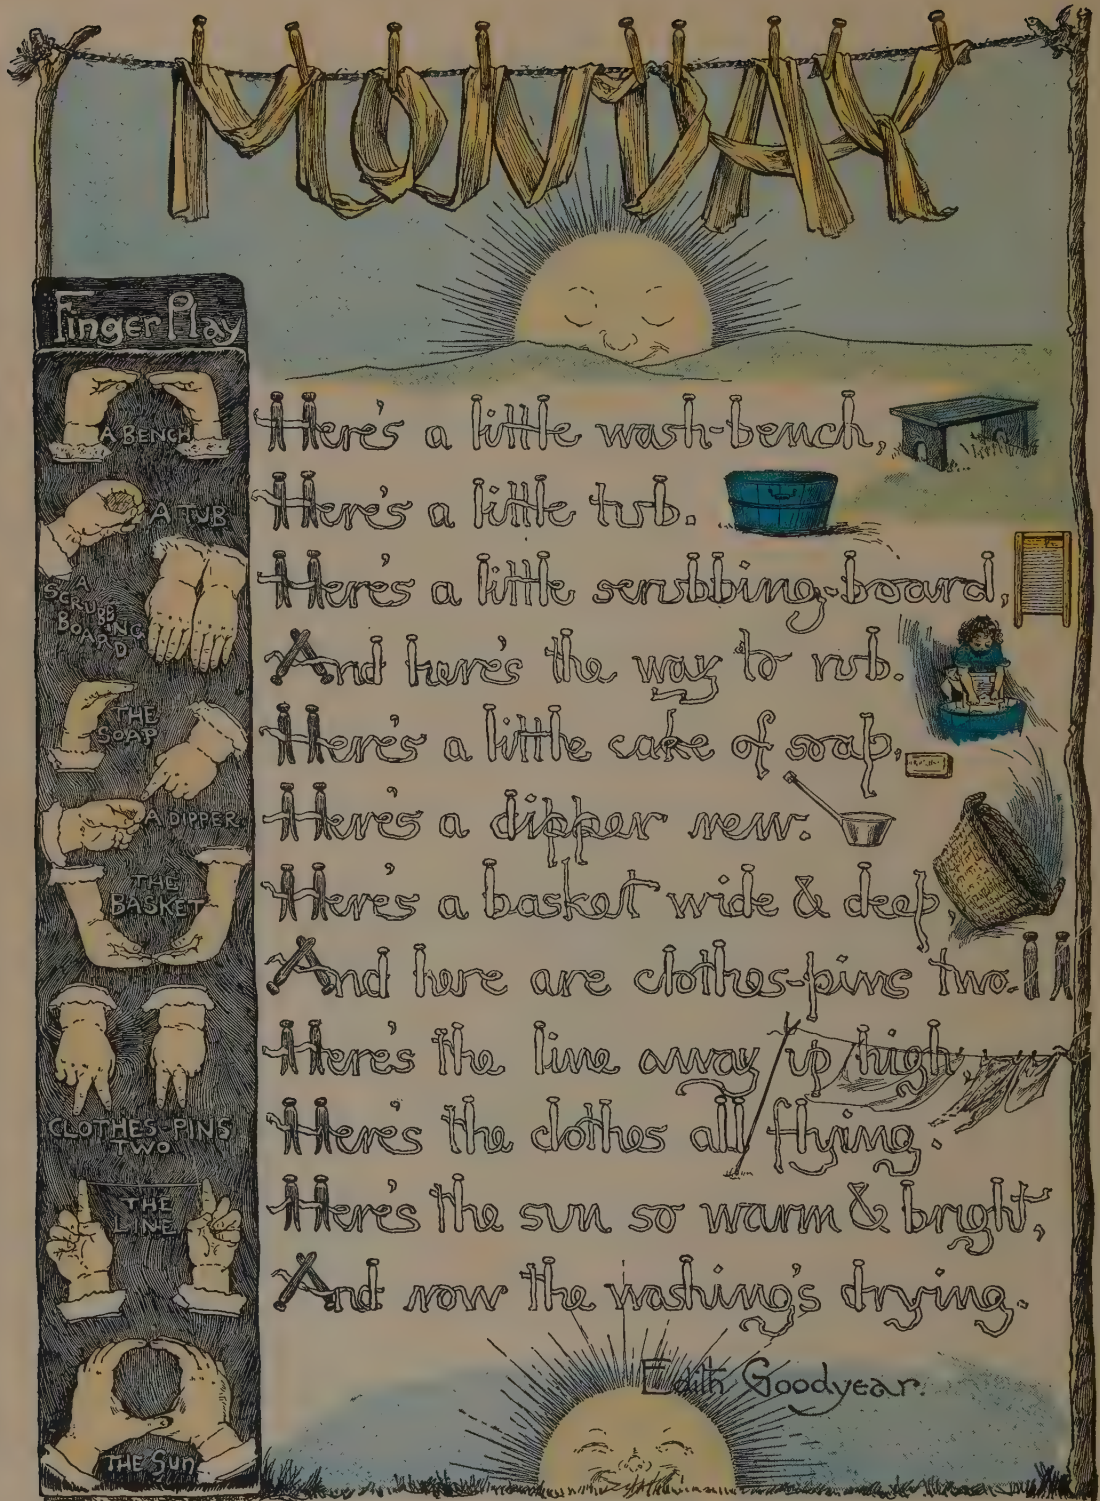 MONDAY
Finger Play
A BENCH
A TUB
A
SCRUBB
BOARING
D
THE
SOAP
A DIPPER
THE
BASKET
CLOTHES-PINS
TWO
THE
LINE
THE Sun
Here's a little wash-bench,
Here's a little tub.
Here's a little scrubbing-board,
And here's the way to rub.
Here's a little cake of soap,
Here's a dipper new.
Here's a basket wide & deep,
And here are clothes-pins two.
Here's the line away up high,
Here's the clothes all flying.
Here's the sun so warm & bright,
And now the washing's drying.
Edith Goodyear.